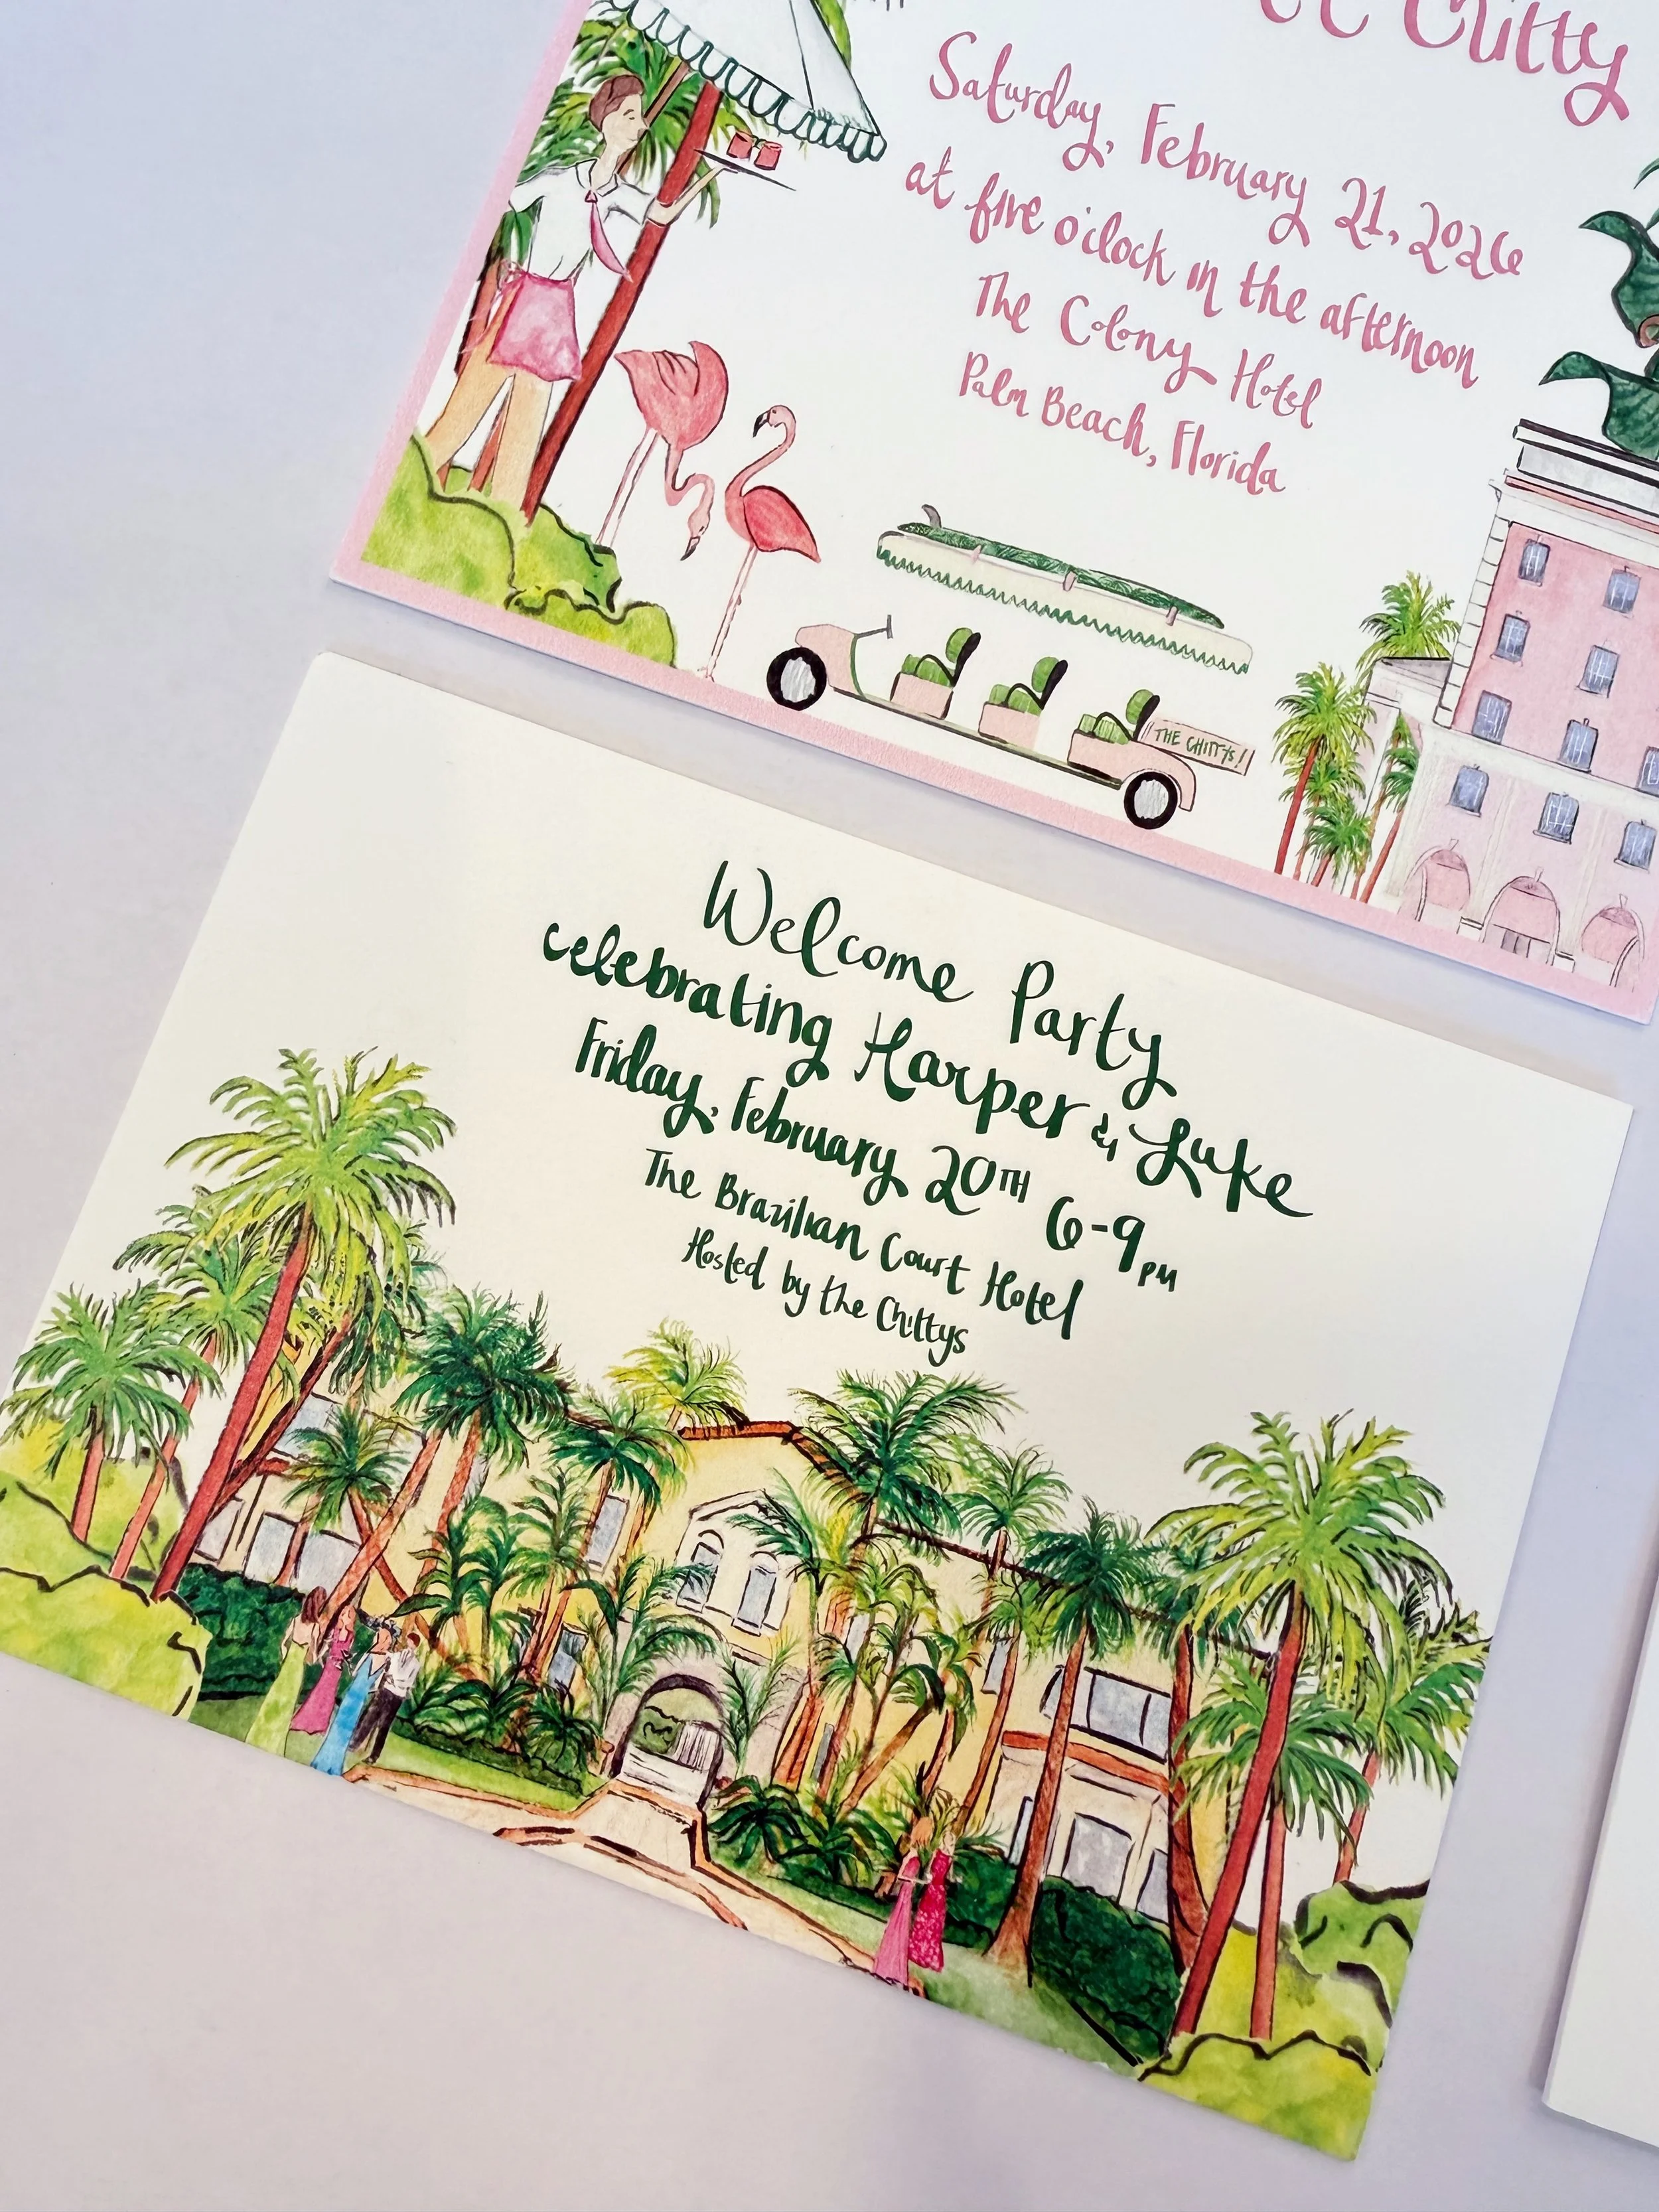 Chitty
Saturday, February 21, 2026
at five o'clock in the afternoon
The Colony Hotel
Palm Beach, Florida
THE CHITTYS!
Welcome Party
celebrating Harper & Luke
Friday, February 20TH 6-9PM
The Brazilian Court Hotel
Hosted by the Chittys